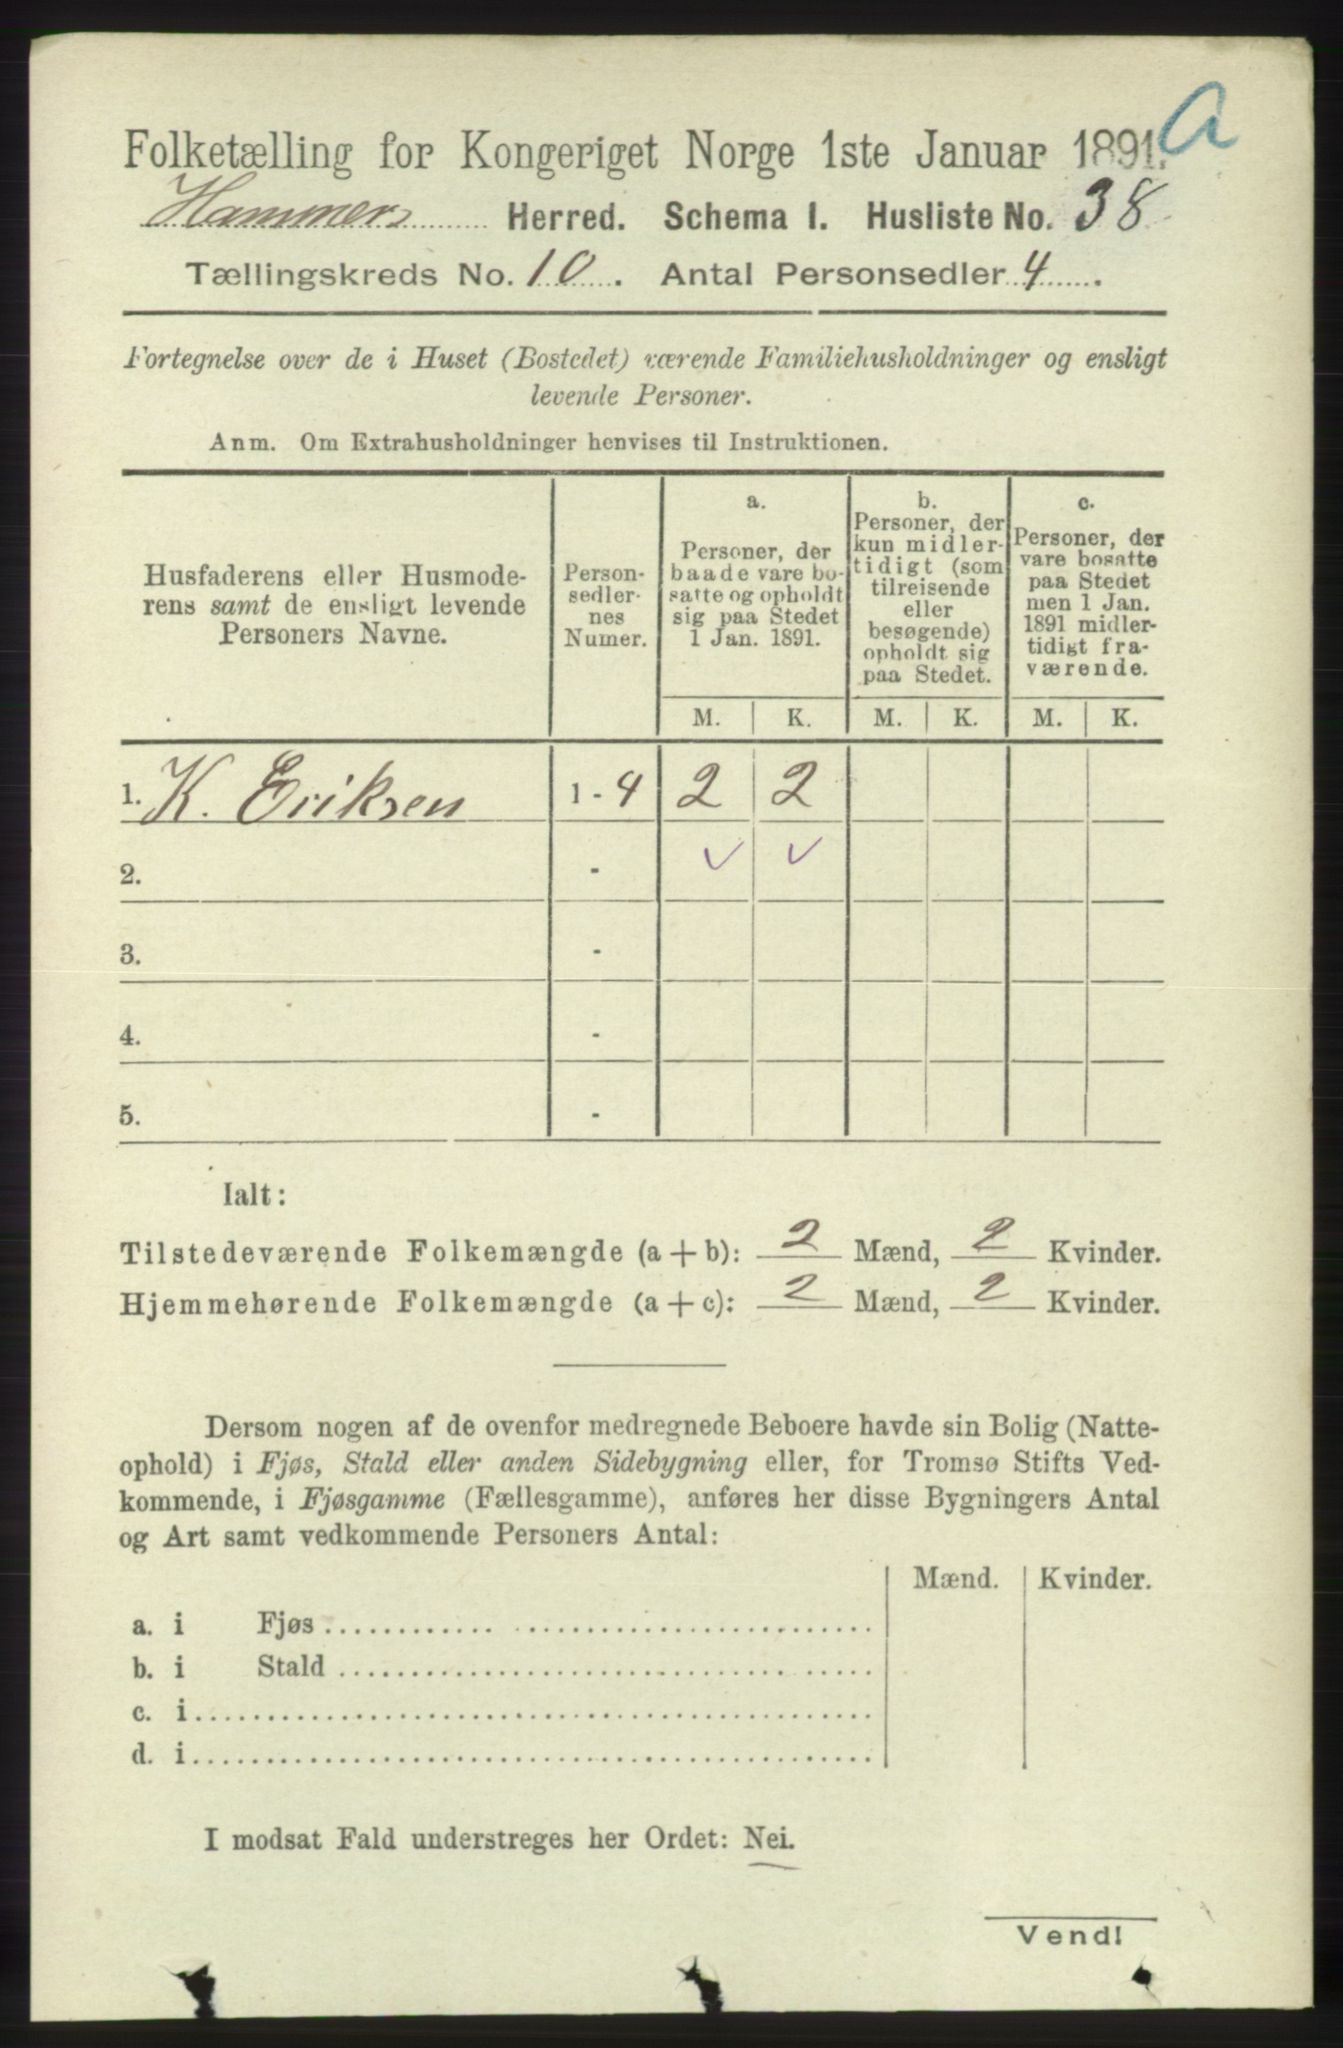 A
Folketælling for Kongeriget Norge 1ste Januar 1891.
Hammers Herred. Schema I. Husliste No. 38
Tællingskreds No. 10. Antal Personsedler 4.
Fortegnelse over de i Huset (Bostedet) værende Familiehusholdninger og ensligt
levende Personer.
Anm. Om Extrahusholdninger henvises til Instruktionen.
Husfaderens eller Husmode-
rens samt de ensligt levende
Personers Navne.
Person-
sedler-
nes
Numer.
a.
Personer, der
baade vare bo-
satte og opholdt
sig paa Stedet
1 Jan. 1891.
b.
Personer, der
kun midler-
tidigt (som
tilreisende
eller
besøgende)
opholdt sig
paa Stedet.
c.
Personer, der
vare bosatte
paa Stedet
men 1 Jan.
1891 midler-
tidigt fra-
værende.
M. K. M. K. M. K.
1. K. Eriksen 1 - 4 2 2
2. - ✓ ✓
3. -
4. -
5. -
Ialt:
Tilstedeværende Folkemængde (a + b): 2 Mænd, 2 Kvinder.
Hjemmehørende Folkemængde (a + c): 2 Mænd, 2 Kvinder.
Dersom nogen af de ovenfor medregnede Beboere havde sin Bolig (Natte-
ophold) i Fjøs, Stald eller anden Sidebygning eller, for Tromsø Stifts Ved-
kommende, i Fjøsgamme (Fællesgamme), anføres her disse Bygningers Antal
og Art samt vedkommende Personers Antal:
Mænd. Kvinder.
a. i Fjøs
b. i Stald
c. i
d. i
I modsat Fald understreges her Ordet: Nei.
Vend!